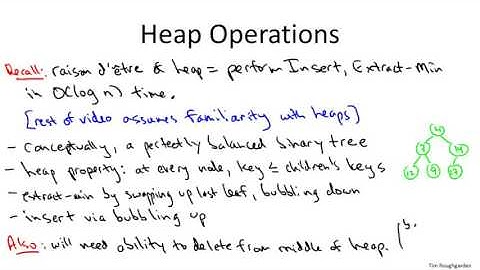 Heap Operations
Recall: raison d'être of heap = perform Insert, Extract-Min
in O(log n) time.
[rest of video assumes familiarity with heaps]
- conceptually, a perfectly balanced binary tree
- heap property: at every node, key ≤ children's keys
- extract-min by swapping up last leaf, bubbling down
- insert via bubbling up
Also: will need ability to delete from middle of heap. (b
4
7
12
9
Tim Roughgarden